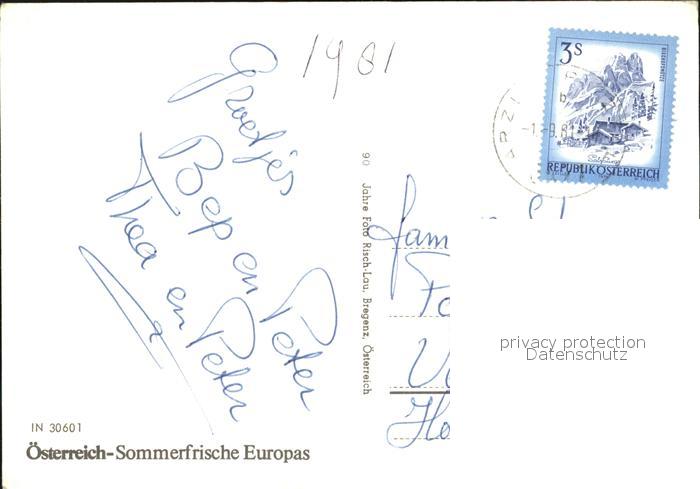 1981
Groetjes
Bep en Peter
Thea en Peter
IN 30601
Österreich-Sommerfrische Europas
90 Jahre Foto Risch-Lau, Bregenz, Österreich
3 S
REPUBLIK ÖSTERREICH
ARZL
-1.-9.81
fam
privacy protection
Datenschutz